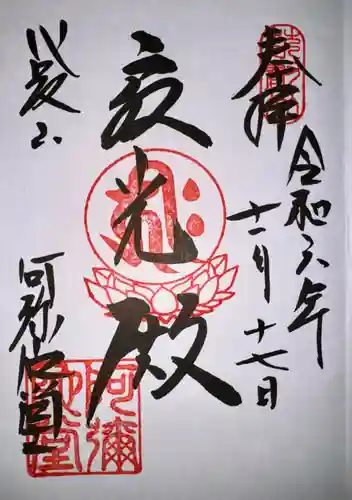 奉拝
令和六年
十一月十七日
寂光殿
阿弥陀堂
阿彌
陀堂